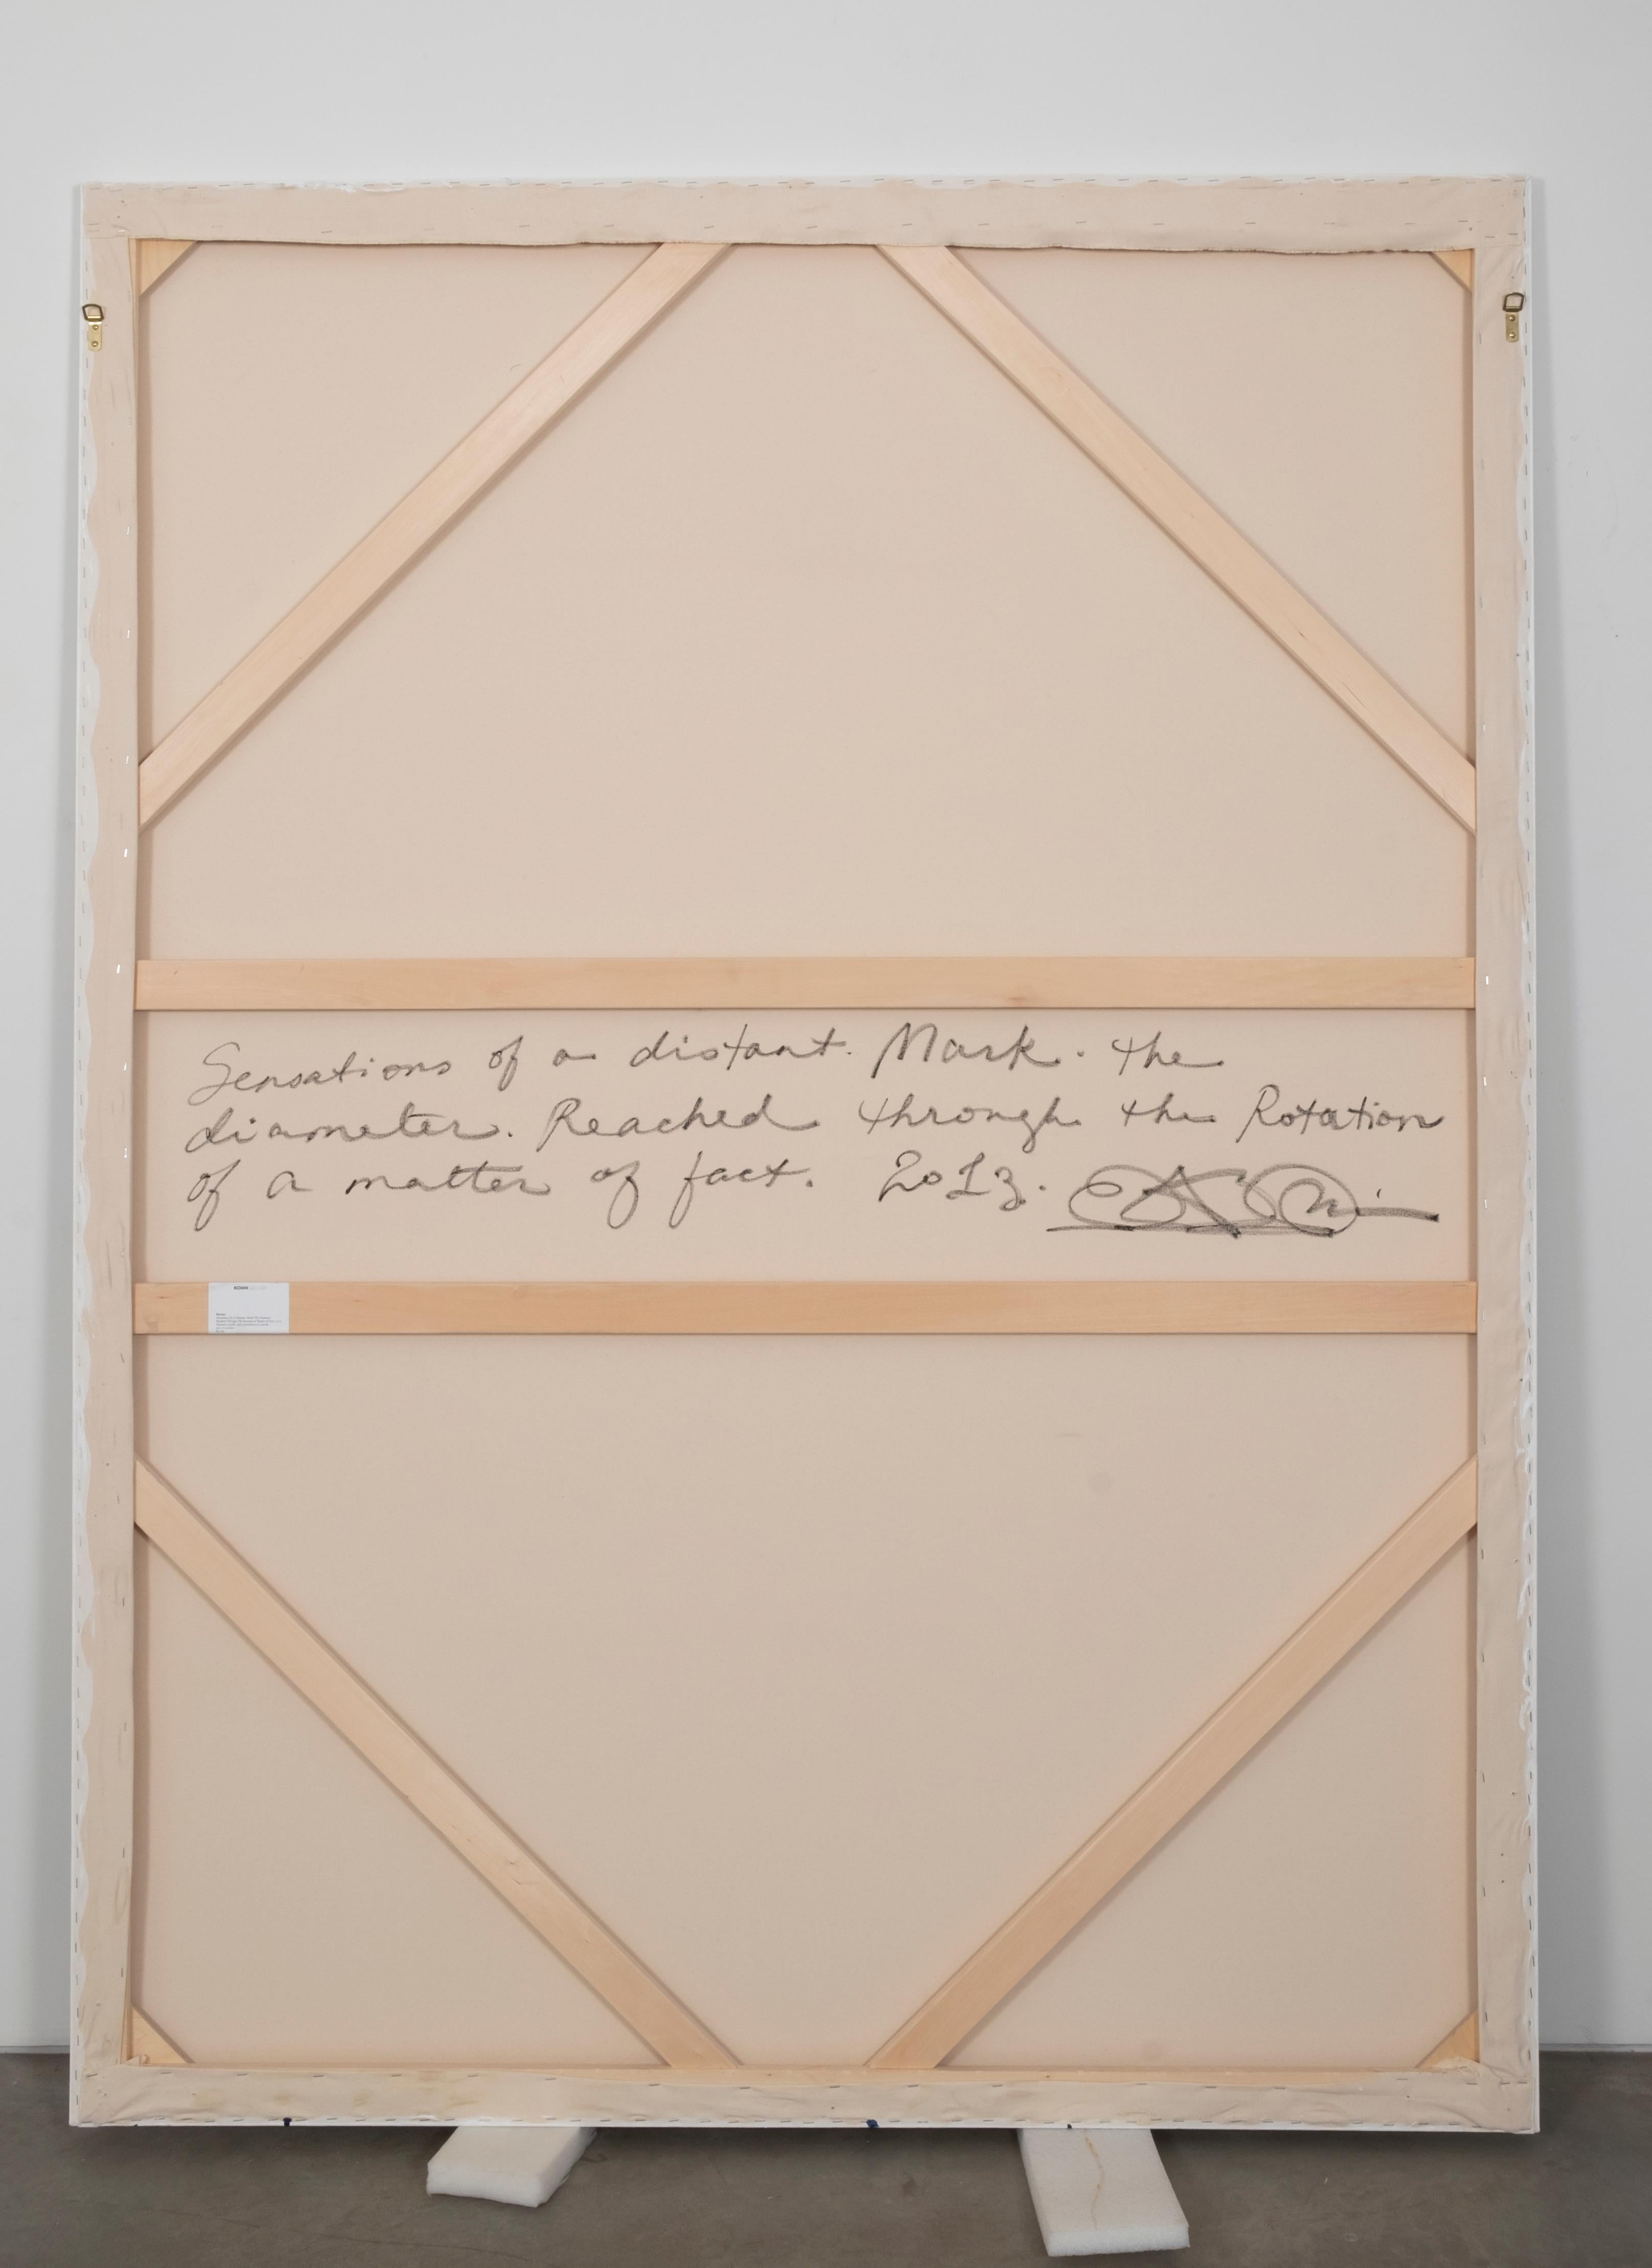 Sensations of a distant. Mark. the
diameter. Reached through the Rotation
of a matter of fact. 2013.
KOHN